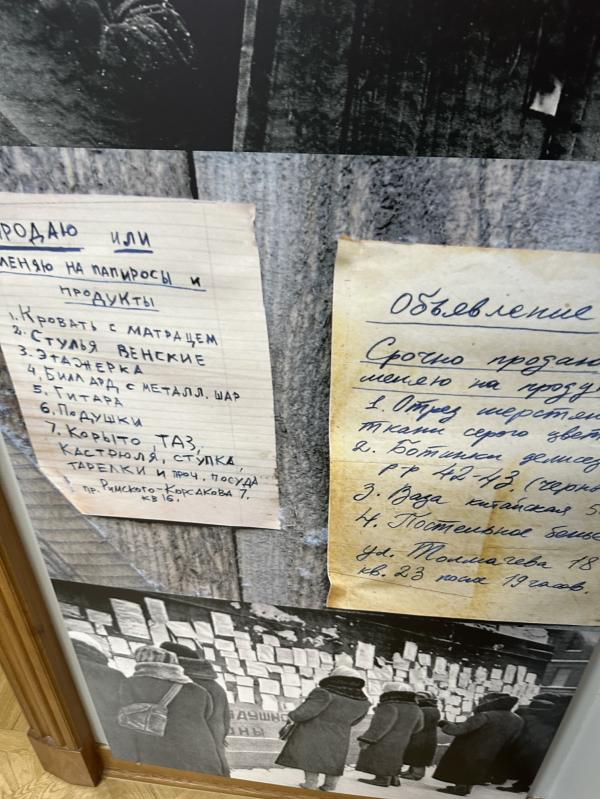 ПРОДАЮ ИЛИ
МЕНЯЮ НА ПАПИРОСЫ И
ПРОДУКТЫ
1. КРОВАТЬ С МАТРАЦЕМ
2. СТУЛЬЯ ВЕНСКИЕ
3. ЭТАЖЕРКА
4. БИЛЛАРД С МЕТАЛЛ. ШАР
5. ГИТАРА
6. ПОДУШКИ
7. КОРЫТО, ТАЗ,
КАСТРЮЛЯ, СТУПКА,
ТАРЕЛКИ И ПРОЧ. ПОСУДА
пр. РИМСКОГО-КОРСАКОВА 7,
КВ 16.
Объявление
Срочно продаю
меняю на проду
1. Отрез шерстян
ткани серого цвет
2. Ботинки демисе
р-р 42-43. (черн
3. Ваза китайская 5
4. Постельное бель
ул. Толмачева 18
кв. 23 после 19 часов.
ДУШНО
НЫ